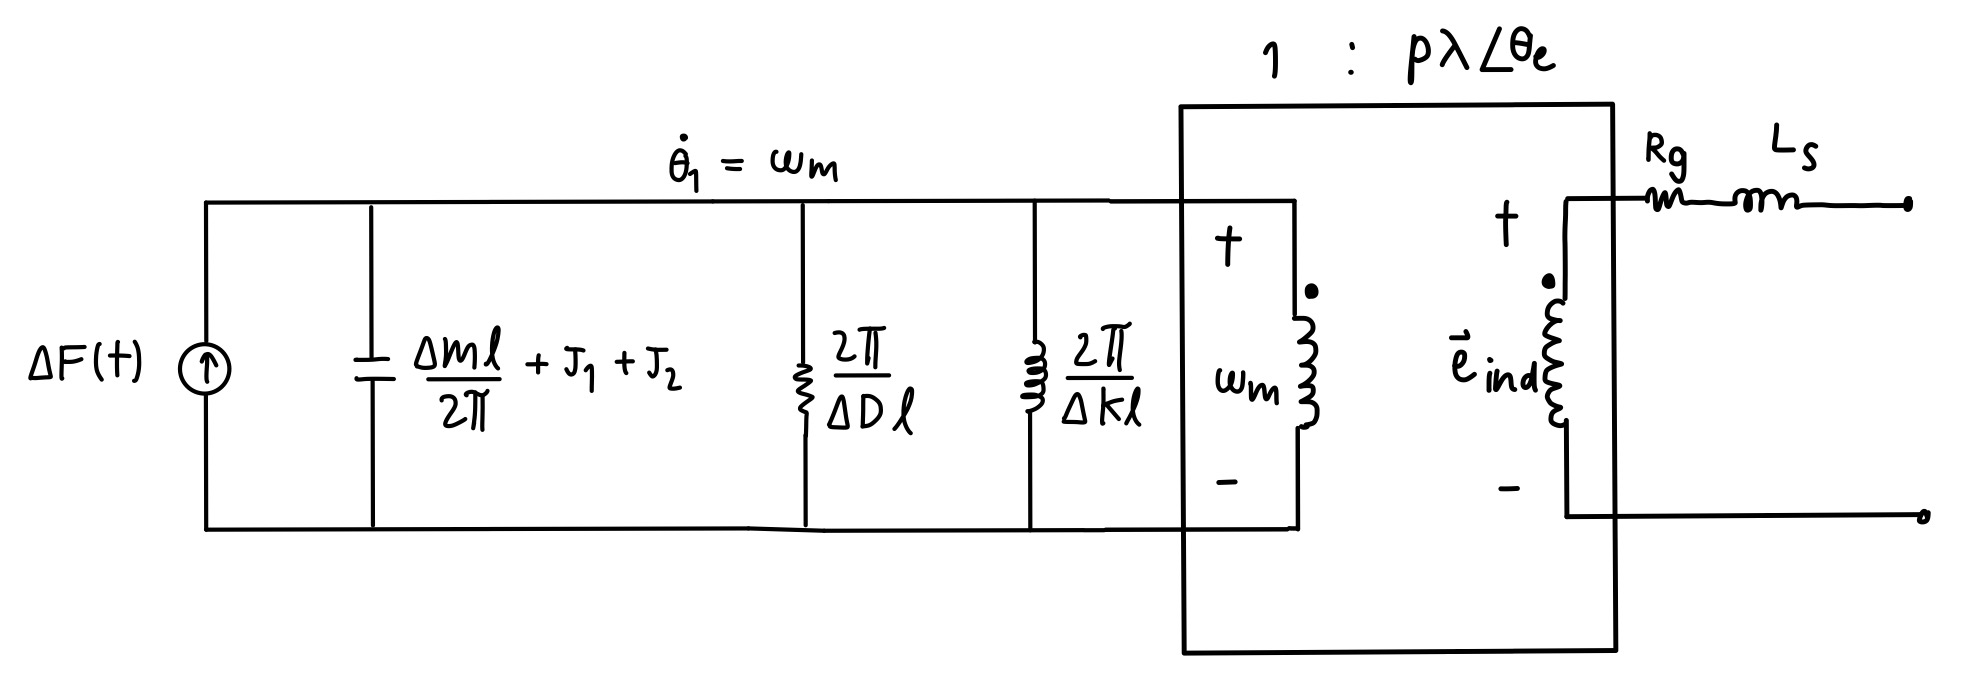 1 : pλ∠θe
Rg Ls
θ̇1 = ωm
+ +
ΔF(t)
Δml/2π + J1 + J2
2π/ΔDl
2π/Δkl
ωm
e⃗ind
- -